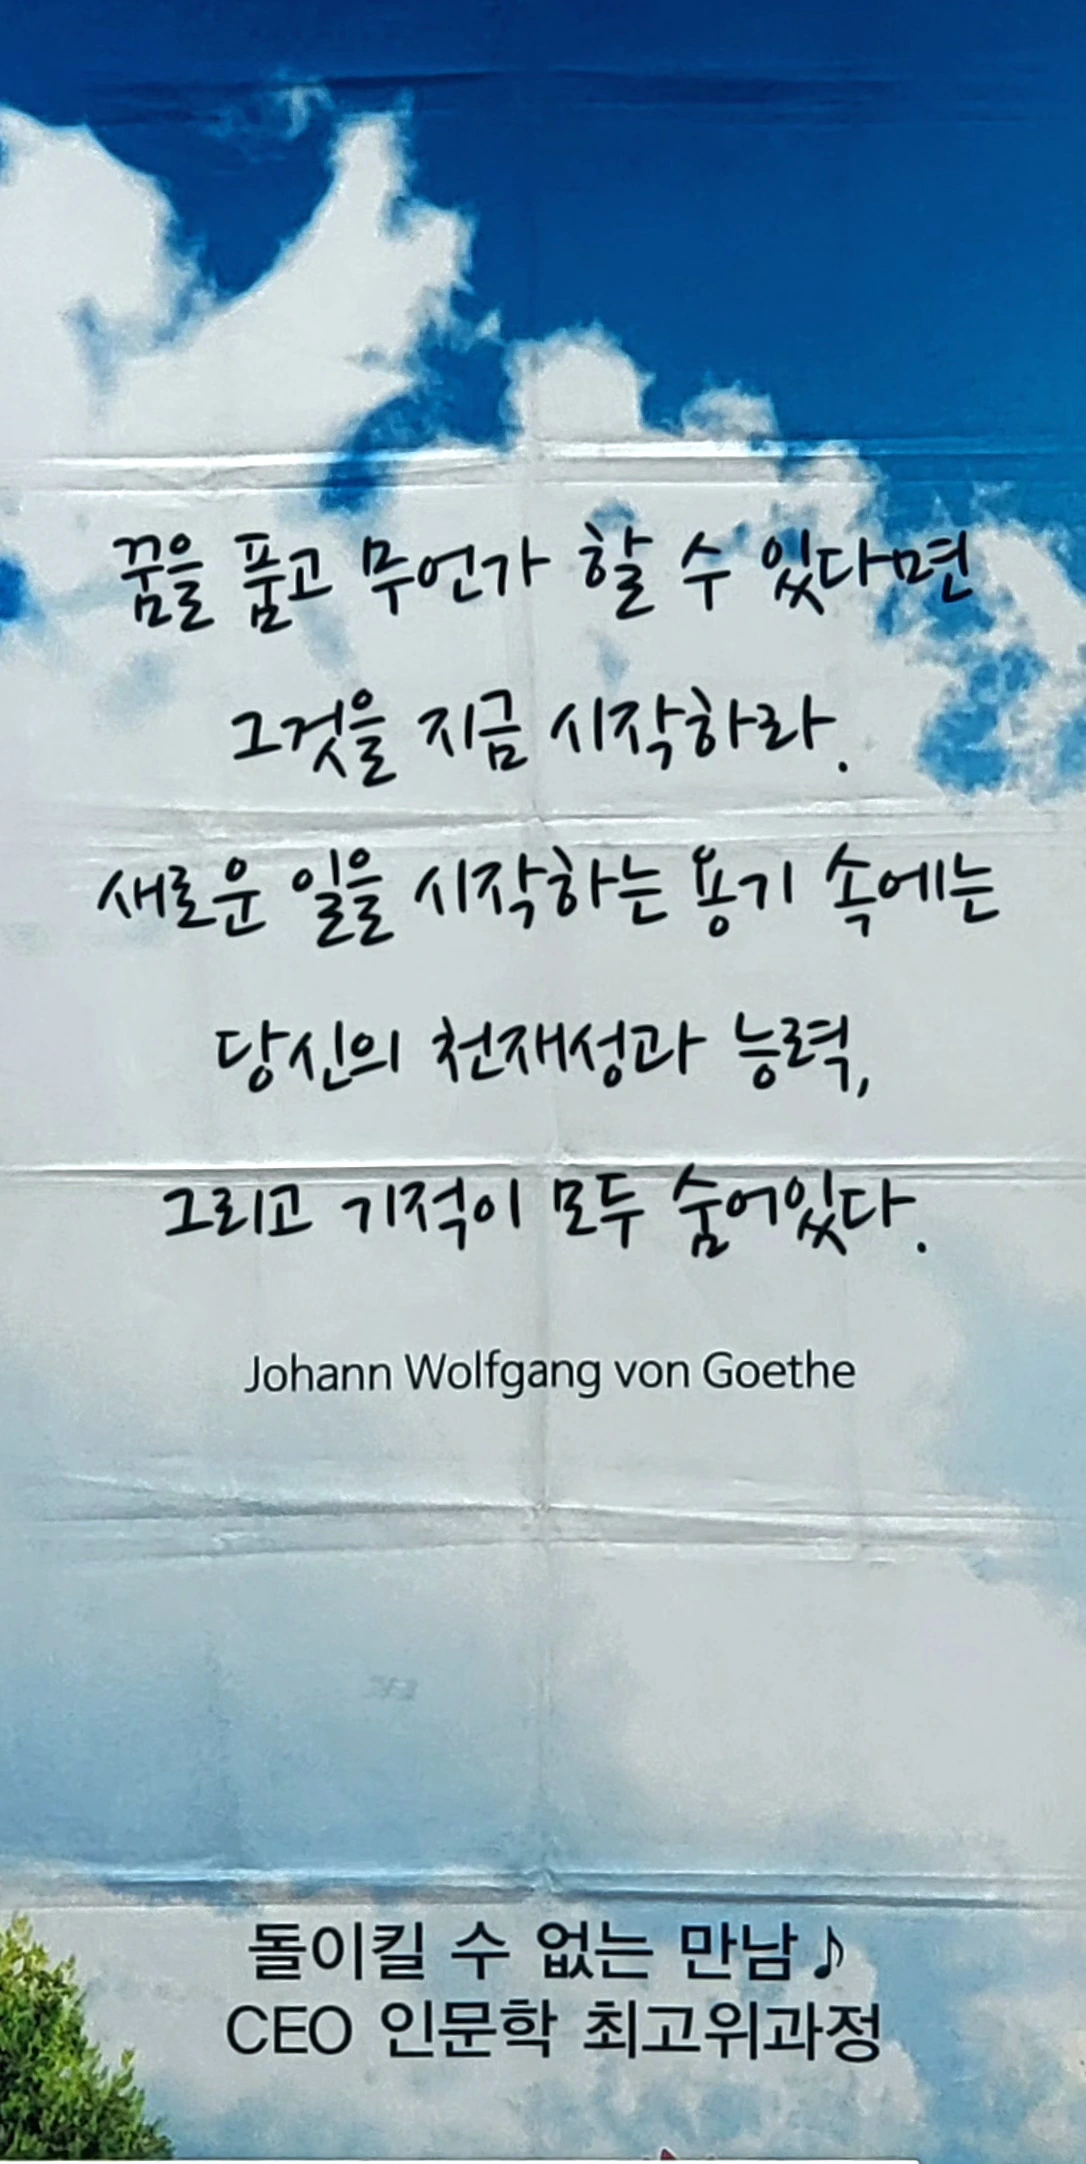 꿈을 품고 무언가 할 수 있다면
그것을 지금 시작하라.
새로운 일을 시작하는 용기 속에는
당신의 천재성과 능력,
그리고 기적이 모두 숨어있다.
Johann Wolfgang von Goethe
돌이킬 수 없는 만남♪
CEO 인문학 최고위과정